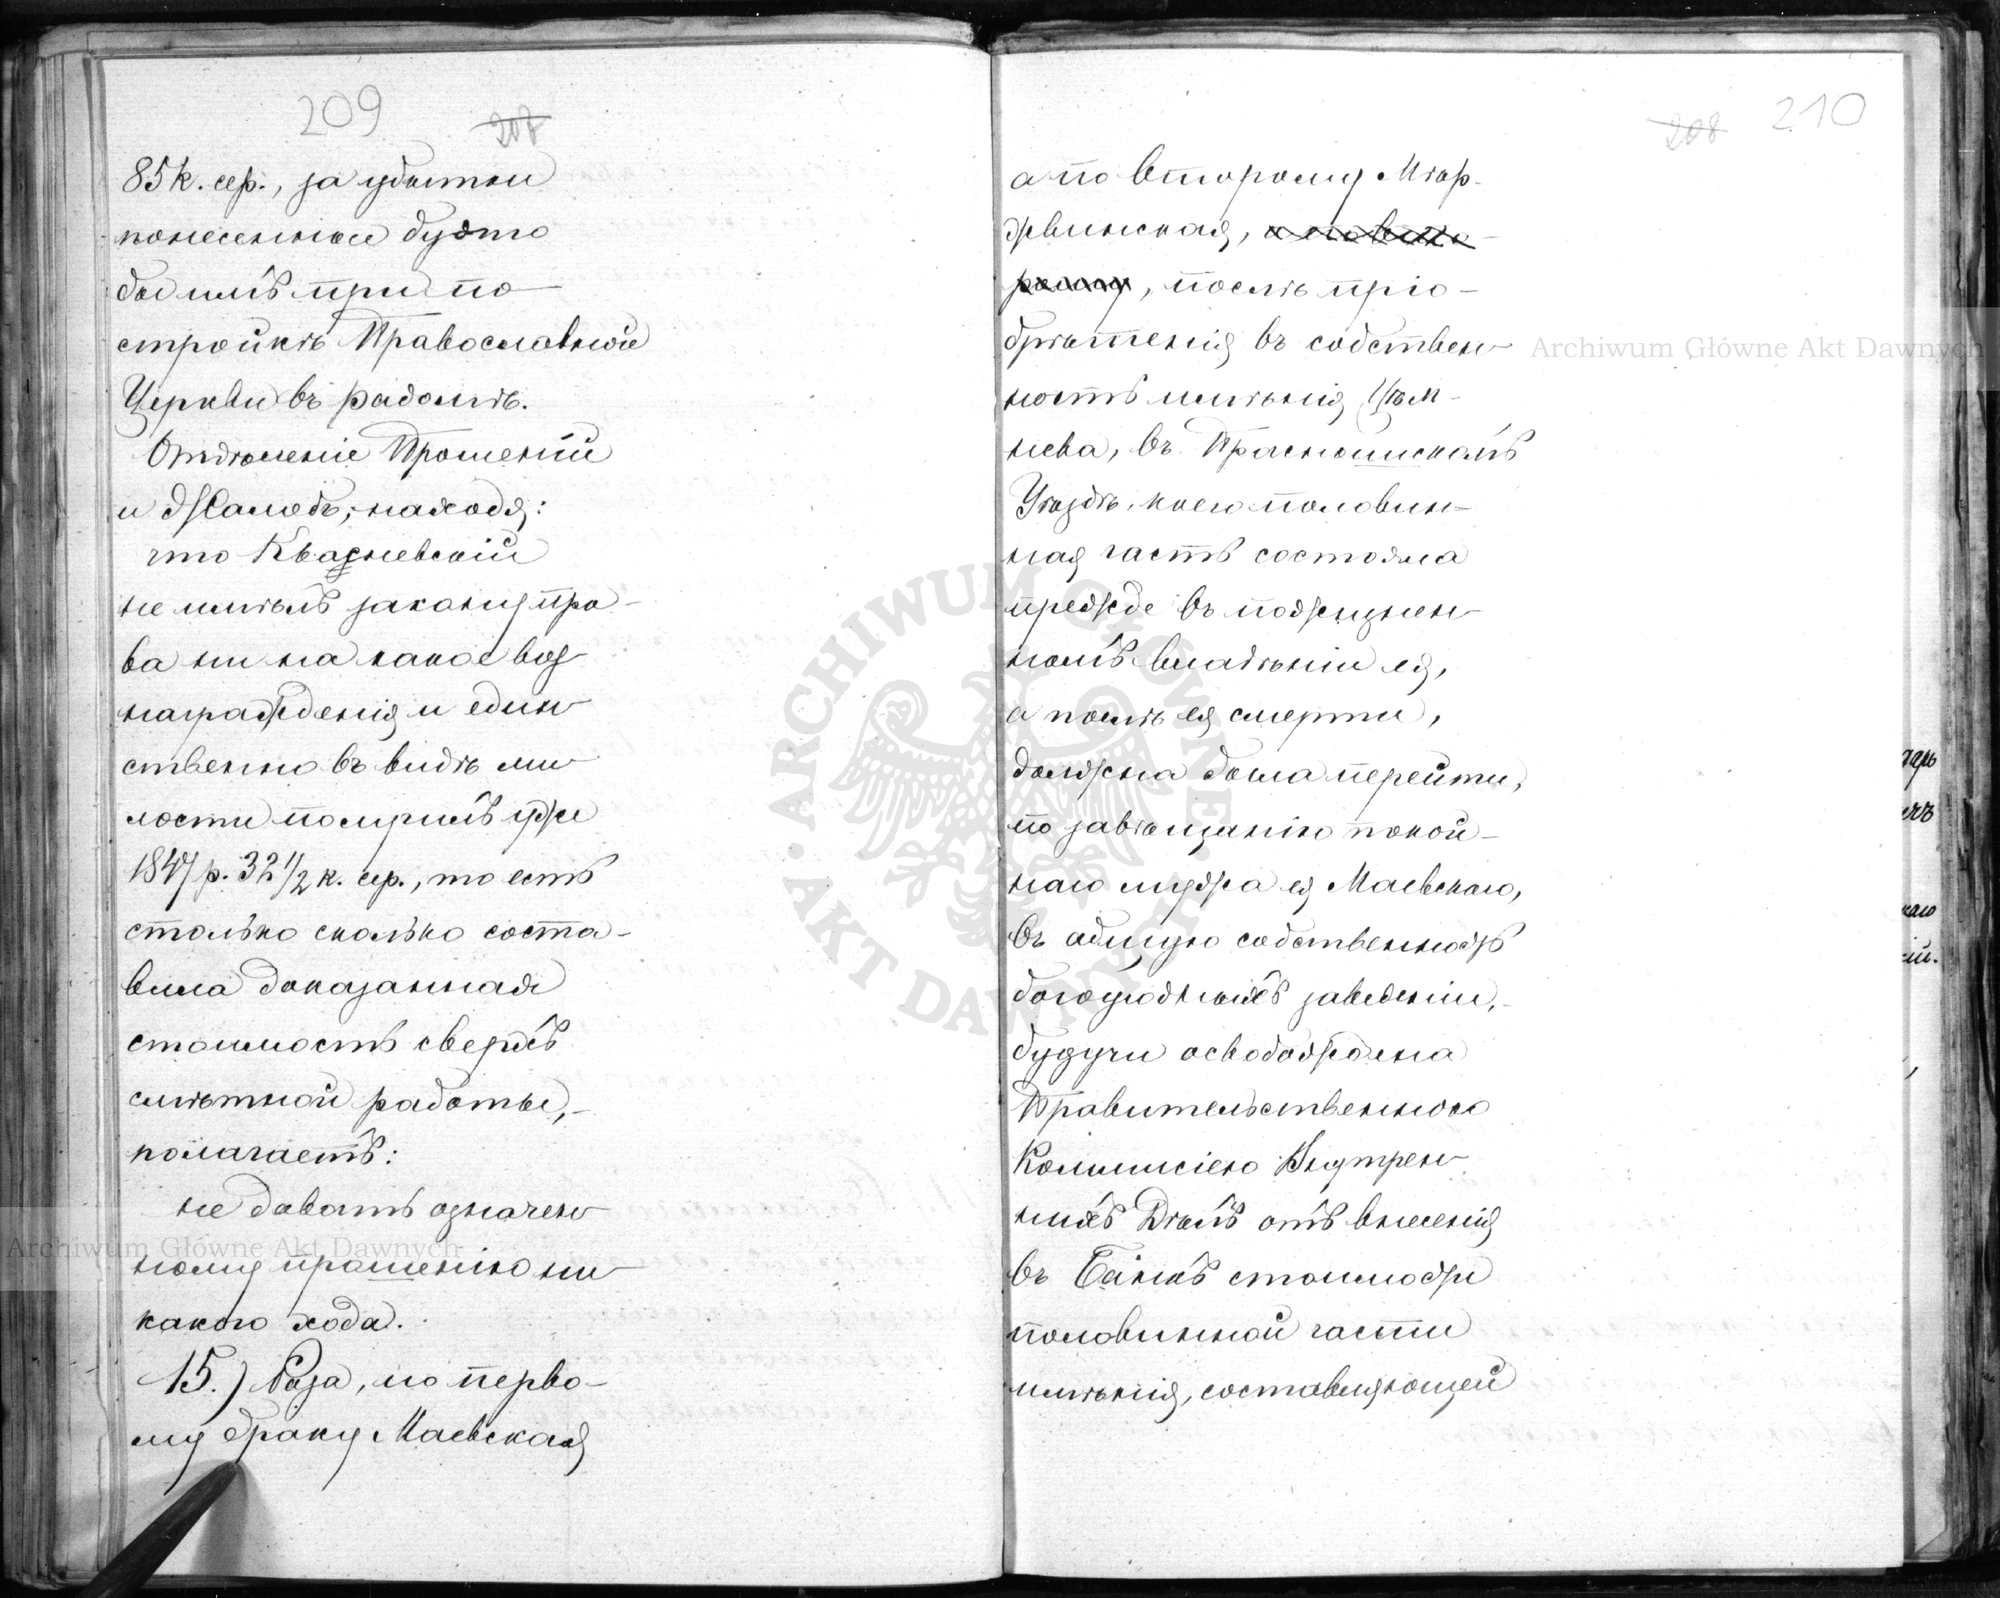 209
207
85 к. сер., за убытки
понесенные будто
бы имъ при по-
стройкѣ Православной
Церкви въ Радомѣ.
Отдѣленіе Прошеній
и Жалобъ, находя:
что Квасневскій
не имѣлъ закону пра-
ва ни на какое воз
награжденія и един-
ственно въ видѣ ми-
лости получилъ уже
1847 р. 32 1/2 к. сер., то есть
столько сколько соста-
вила доказанная
стоимость сверхъ
смѣтной работы,-
полагаетъ:
не давать означен-
ному прошенію ни-
какого хода.
15.) Роза, по перво-
му браку Маевская
208 210
а по второму Мѣр-
жвинская,
, послѣ прiо-
брѣтенія въ собствен-
ность имѣнія Цѣм-
нева, въ Праснышскомъ
Уѣздѣ, коего половин-
ная часть состояла
прежде въ пожизнен-
номъ владѣніи ея,
а послѣ ея смерти,
должна была перейти,
по завѣщанію покой-
наго мужа ея Маевскаго,
въ общую собственность
богоугодныхъ заведеніи,-
будучи освобождена
Правительственною
Коммисіею Внутрен-
нихъ Дѣлъ отъ внесенія
въ Банкъ стоимости
половинной части
имѣнія, составляющей
Archiwum Główne Akt Dawnych
Archiwum Główne Akt Dawnych
ARCHIWUM GŁÓWNE
AKT DAWNYCH